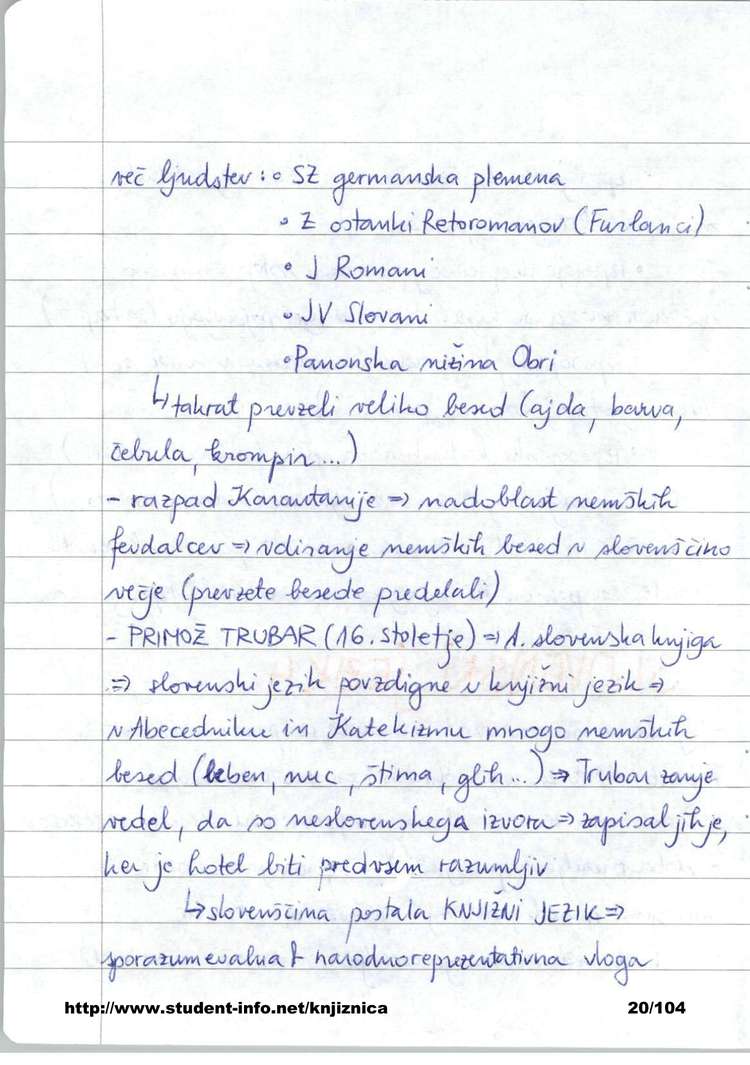 več ljudstev: • SZ germanska plemena
• Z ostanki Retoromanov (Furlanci)
• J Romani
• JV Slovani
• Panonska nižina Obri
↳ takrat prevzeli veliko besed (ajda, barva,
čebula, krompir...)
- razpad Karantanije => nadoblast nemških
fevdalcev => vdiranje nemških besed v slovenščino
večje (prevzete besede predelali)
- PRIMOŽ TRUBAR (16. stoletje) => 1. slovenska knjiga
=> slovenski jezik povzdigne v knjižni jezik =>
v Abecedniku in Katekizmu mnogo nemških
besed (leben, nuc, štima, glih...) => Trubar zanje
vedel, da so neslovenskega izvora => zapisal jih je,
ker je hotel biti predvsem razumljiv
↳ slovenščina postala KNJIŽNI JEZIK =>
sporazumevalna + narodnoreprezentativna vloga
http://www.student-info.net/knjiznica 20/104